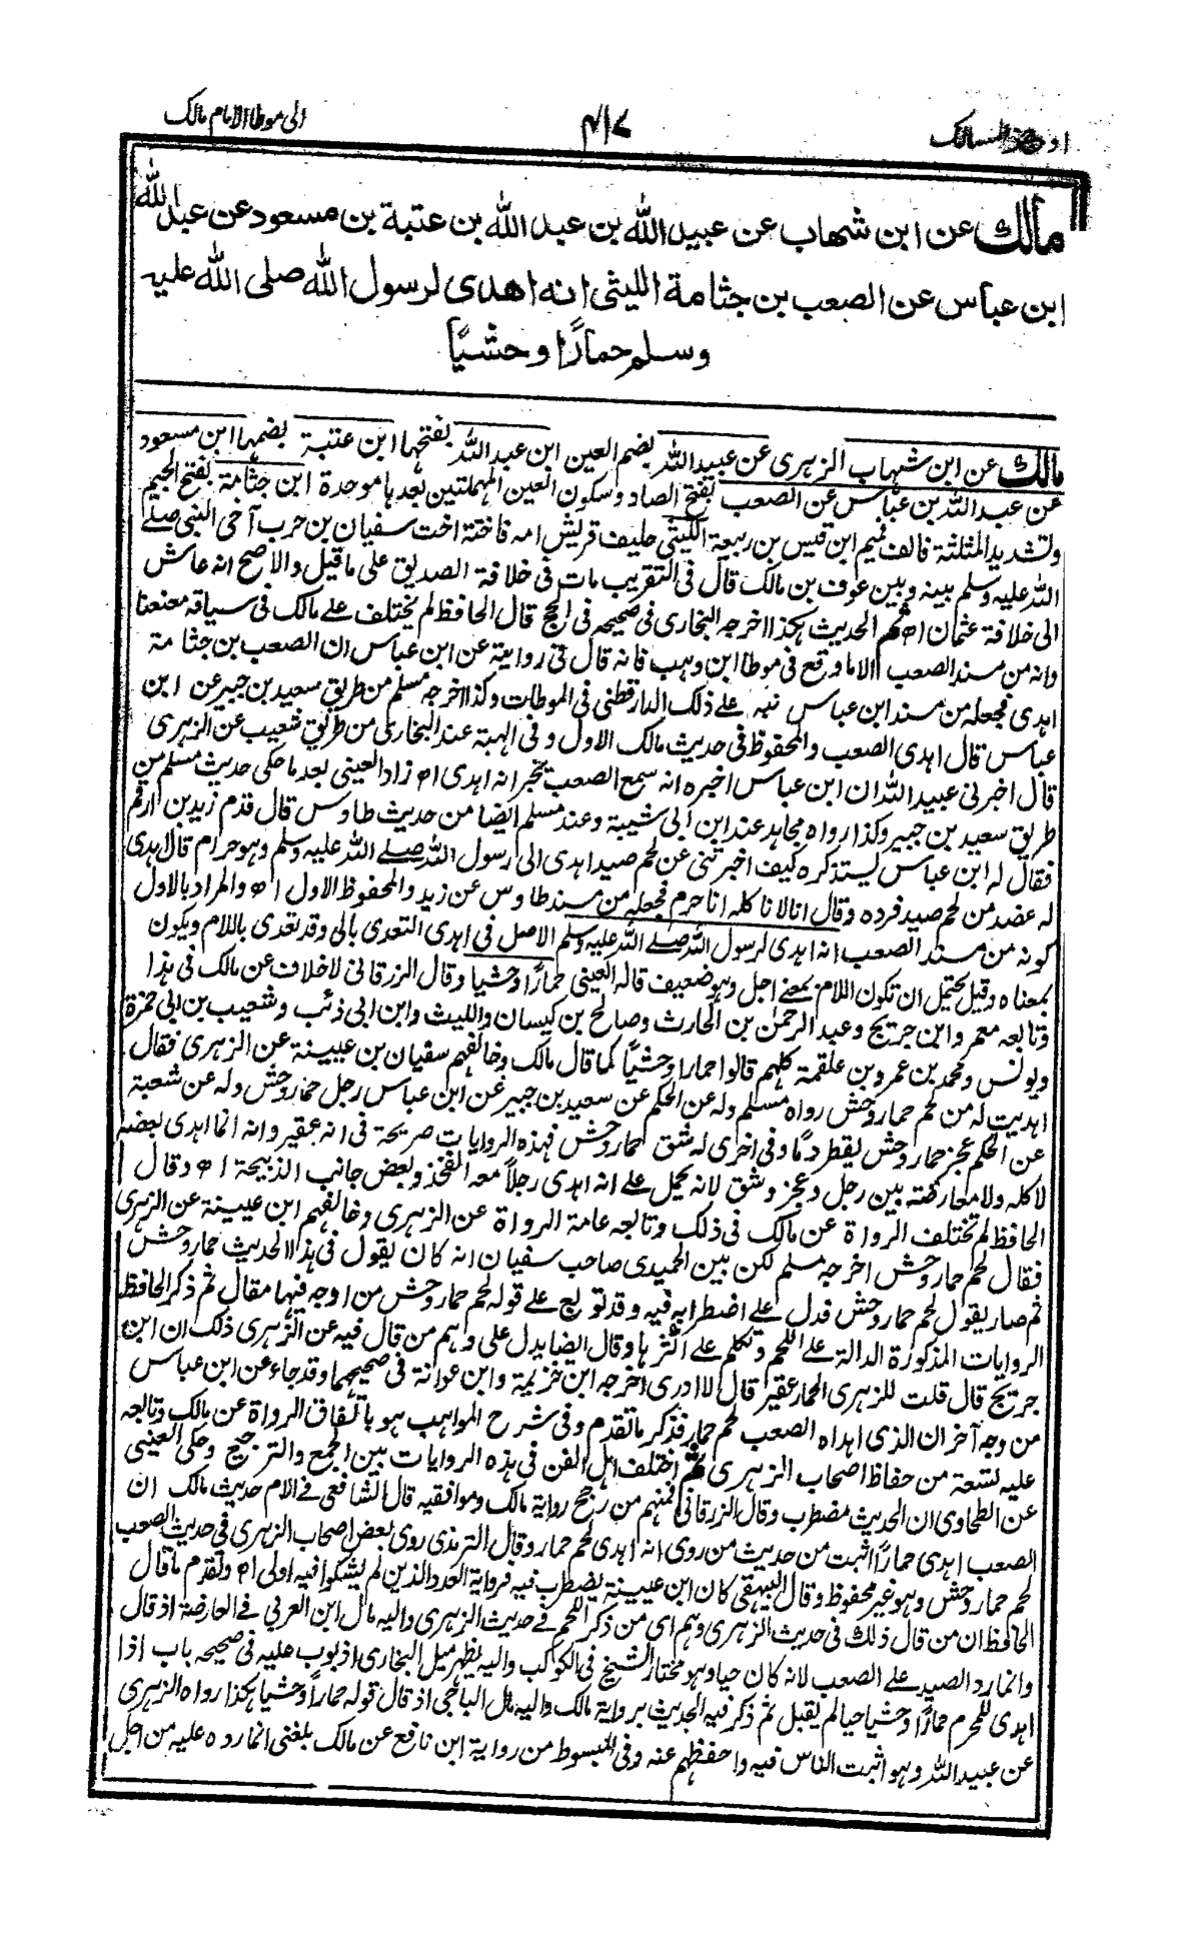 اوجز المسالك
٤١٧
الى موطا الامام مالك
مالك عن ابن شهاب عن عبيد الله بن عبد الله بن عتبة بن مسعود عن عبد الله
ابن عباس عن الصعب بن جثامة الليثى انه اهدى لرسول الله صلى الله عليه
وسلم حمارًا وحشيًا
مالك عن ابن شهاب الزهرى عن عبيد الله بضم العين ابن عبد الله بفتحها ابن عتبة بضمها ابن مسعود
عن عبد الله بن عباس عن الصعب بفتح الصاد وسكون العين المهملتين بعدها موحدة ابن جثامة بفتح الجيم
وتشديد المثلثة فالف فميم ابن قيس بن ربيعة الليثى حليف قريش امه فاختة اخت سفيان بن حرب آخى النبى صلے
الله عليه وسلم بينه وبين عوف بن مالك قال فى التقريب مات فى خلافة الصديق على ما قيل والاصح انه عاش
الى خلافة عثمان اھ ثم الحديث هكذا اخرجه البخارى فى صحيحه فى الحج قال الحافظ لم يختلف علے مالك فى سياقه معنعنا
وانه من مسند الصعب الا ما وقع فى موطا ابن وهب فانه قال فى روايته عن ابن عباس ان الصعب بن جثامة
اهدى فجعله من مسند ابن عباس نبه علے ذلك الدارقطنى فى الموطات وكذا اخرجه مسلم من طريق سعيد بن جبير عن ابن
عباس قال اهدى الصعب والمحفوظ فى حديث مالك الاول وفى الهبة عند البخارى من طريق شعيب عن الزهرى
قال اخبرنى عبيد الله ان ابن عباس اخبره انه سمع الصعب يخبر انه اهدى اھ زاد العينى بعد ما حكى حديث مسلم من
طريق سعيد بن جبير وكذا رواه مجاهد عند ابن ابى شيبة وعند مسلم ايضا من حديث طاوس قال قدم زيد بن ارقم
فقال له ابن عباس يستذكره كيف اخبرتنى عن لحم صيد اهدى الى رسول الله صلے الله عليه وسلم وهو حرام قال اهدى
له عضد من لحم صيد فرده وقال انا لا ناكله انا حرم فجعله من مسند طاوس عن زيد والمحفوظ الاول اھ والمراد بالاول
كونه من مسند الصعب انه اهدى لرسول الله صلے الله عليه وسلم الاصل فى اهدى التعدى بالى وقد تعدى باللام ويكون
بمعناه وقيل يحتمل ان تكون اللام بمعنے اجل وهو ضعيف قاله العينى حمارًا وحشيا وقال الزرقانى لا خلاف عن مالك فى هذا
وتابعه معمر وابن جريج وعبد الرحمن بن الحارث وصالح بن كيسان والليث وابن ابى ذئب وشعيب بن ابى حمزة
ويونس ومحمد بن عمرو بن علقمة كلهم قالوا حمارا وحشيًا كما قال مالك وخالفهم سفيان بن عيينة عن الزهرى فقال
اهديت له من لحم حمار وحش رواه مسلم وله عن الحكم عن سعيد بن جبير عن ابن عباس رجل حمار وحش وله عن شعبة
عن الحكم عجز حمار وحش يقطر دمًا وفى اخرى له شق حمار وحش فهذه الروايات صريحة فى انه عقير وانه انما اهدى بعضه
لا كله ولا معارضة بين رجل وعجز وشق لانه يحمل علے انه اهدى رجلاً معه الفخذ وبعض جانب الذبيحة اھ وقال
الحافظ لم تختلف الرواة عن مالك فى ذلك وتابعه عامة الرواة عن الزهرى وخالفهم ابن عيينة عن الزهرى
فقال لحم حمار وحش اخرجه مسلم لكن بين الحميدى صاحب سفيان انه كان يقول فى هذا الحديث حمار وحش
ثم صار يقول لحم حمار وحش فدل علے اضطرابه فيه وقد توبع علے قوله لحم حمار وحش من اوجه فيها مقال ثم ذكر الحافظ
الروايات المذكورة الدالة علے اللحم وتكلم علے اكثرها وقال ايضا يدل على وهم من قال فيه عن الزهرى ذلك ان ابن
جريج قال قلت للزهرى الحمار عقير قال لا ادرى اخرجه ابن خزيمة وابن عوانة فى صحيحهما وقد جاء عن ابن عباس
من وجه آخر ان الذى اهداه الصعب لحم حمار فذكر ما تقدم وفى شرح المواهب هو باتفاق الرواة عن مالك وتابعه
عليه تسعة من حفاظ اصحاب الزهرى ثم اختلف اهل الفن فى هذه الروايات بين الجمع والترجيح وحكى العينى
عن الطحاوى ان الحديث مضطرب وقال الزرقانى فمنهم من رجح رواية مالك وموافقيه قال الشافعى فے الام حديث مالك ان
الصعب اهدى حمارًا اثبت من حديث من روى انه اهدى لحم حمار وقال الترمذى روى بعض اصحاب الزهرى فى حديث الصعب
لحم حمار وحش وهو غير محفوظ وقال البيهقى كان ابن عيينة يضطرب فيه فرواية العدد الذين لم يشكوا فيه اولى اھ وتقدم ما قال
الحافظ ان من قال ذلك فى حديث الزهرى وهم اى من ذكر اللحم فے حديث الزهرى واليه مال ابن العربى فے العارضة اذ قال
وانما رد الصيد علے الصعب لانه كان حيا وهو مختار الشيخ فى الكوكب واليه يظهر ميل البخارى اذ بوب عليه فى صحيحه باب اذا
اهدى للمحرم حمارًا وحشيا حيا لم يقبل ثم ذكر فيه الحديث برواية مالك واليه مال الباجى اذ قال قوله حماراً وحشيا هكذا رواه الزهرى
عن عبيد الله وهو اثبت الناس فيه واحفظهم عنه وفى المبسوط من رواية ابن نافع عن مالك بلغنى انما رده عليه من اجل